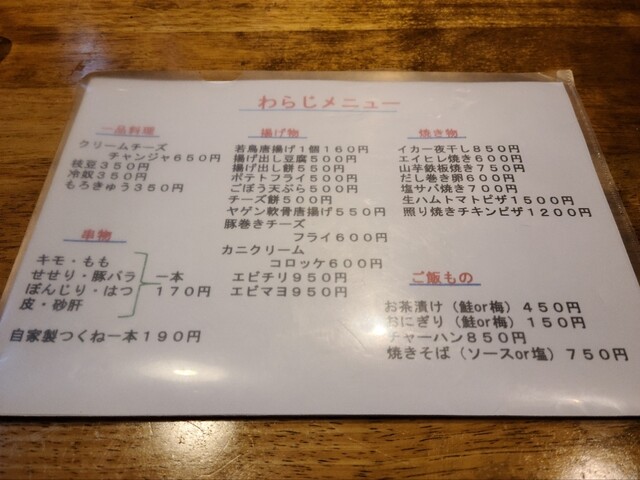 わらじメニュー
一品料理
クリームチーズ
チャンジャ650円
枝豆350円
冷奴350円
もろきゅう350円
串物
キモ・もも
せせり・豚バラ
ぼんじり・はつ
皮・砂肝
一本
170円
自家製つくね一本190円
揚げ物
若鳥唐揚げ1個160円
揚げ出し豆腐500円
揚げ出し餅550円
ポテトフライ500円
ごぼう天ぷら500円
チーズ餅500円
ヤゲン軟骨唐揚げ550円
豚巻きチーズ
フライ600円
カニクリーム
コロッケ600円
エビチリ950円
エビマヨ950円
焼き物
イカ一夜干し850円
エイヒレ焼き600円
山芋鉄板焼き750円
だし巻き卵600円
塩サバ焼き700円
生ハムトマトピザ1500円
照り焼きチキンピザ1200円
ご飯もの
お茶漬け（鮭or梅）450円
おにぎり（鮭or梅）150円
チャーハン850円
焼きそば（ソースor塩）750円